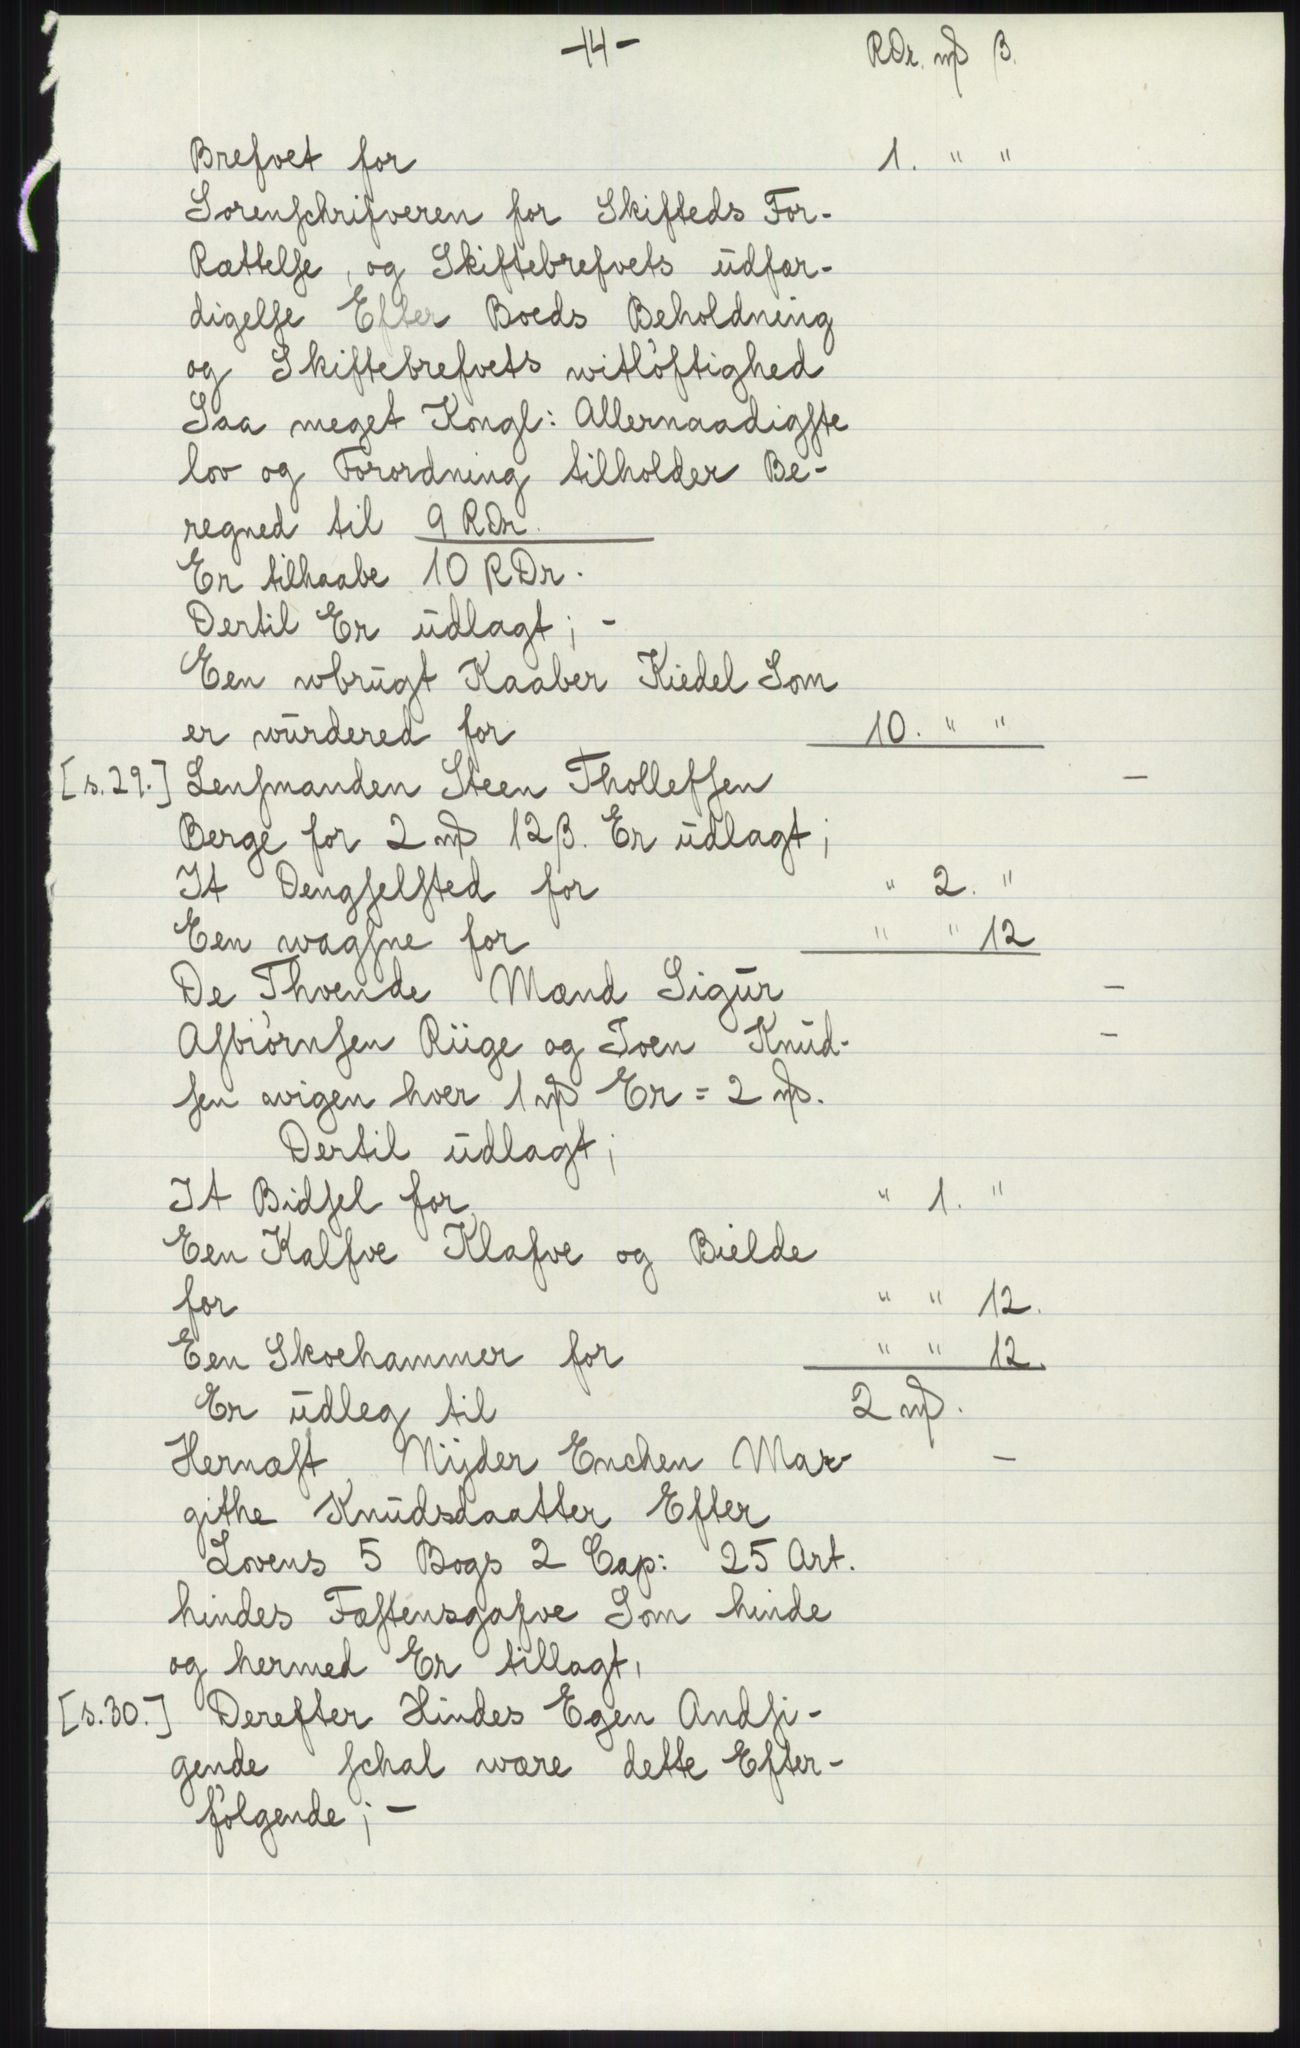 -14-
RDr. mß ß.
Brefvet for 1. " "
Sorenschrifveren for Skifteds For-
Rættelse, og Skiftebrefvets udfær-
digelse Efter Boeds Beholdning
og Skiftebrefvets witløftighed
Saa meget Kongl: Allernaadigste
lov og Forordning tilholder Be-
regned til 9 RDr.
Er tilhaabe 10 RDr.
Dertil Er udlagt; -
Een wbrugt Kaaber Kiedel Som
er wurdered for 10. " "
[s.29.] Lensmanden Steen Thollefsen -
Berge for 2 mß 12 ß. Er udlagt;
It Dengselsted for " 2. "
Een wagsne for " " 12
De Thvende Mænd Sigur -
Asbiørnsen Riige og Joen Knud- -
sen wigen hver 1 mß Er = 2 mß.
Dertil udlagt;
It Bidsel for " 1. "
Een Kalfve Klafve og Bielde
for " " 12.
Een Skoehammer for " " 12.
Er udleg til 2 mß.
Hernæst Nyder Enchen Mar- -
githe Knudsdaatter Efter
Lovens 5 Bogs 2 Cap: 25 Art.
hindes Fæstensgafve Som hinde
og hermed Er tillagt,
[s.30.] Derefter Hindes Egen Andsi-
gende schal wære dette Efter-
følgende; -